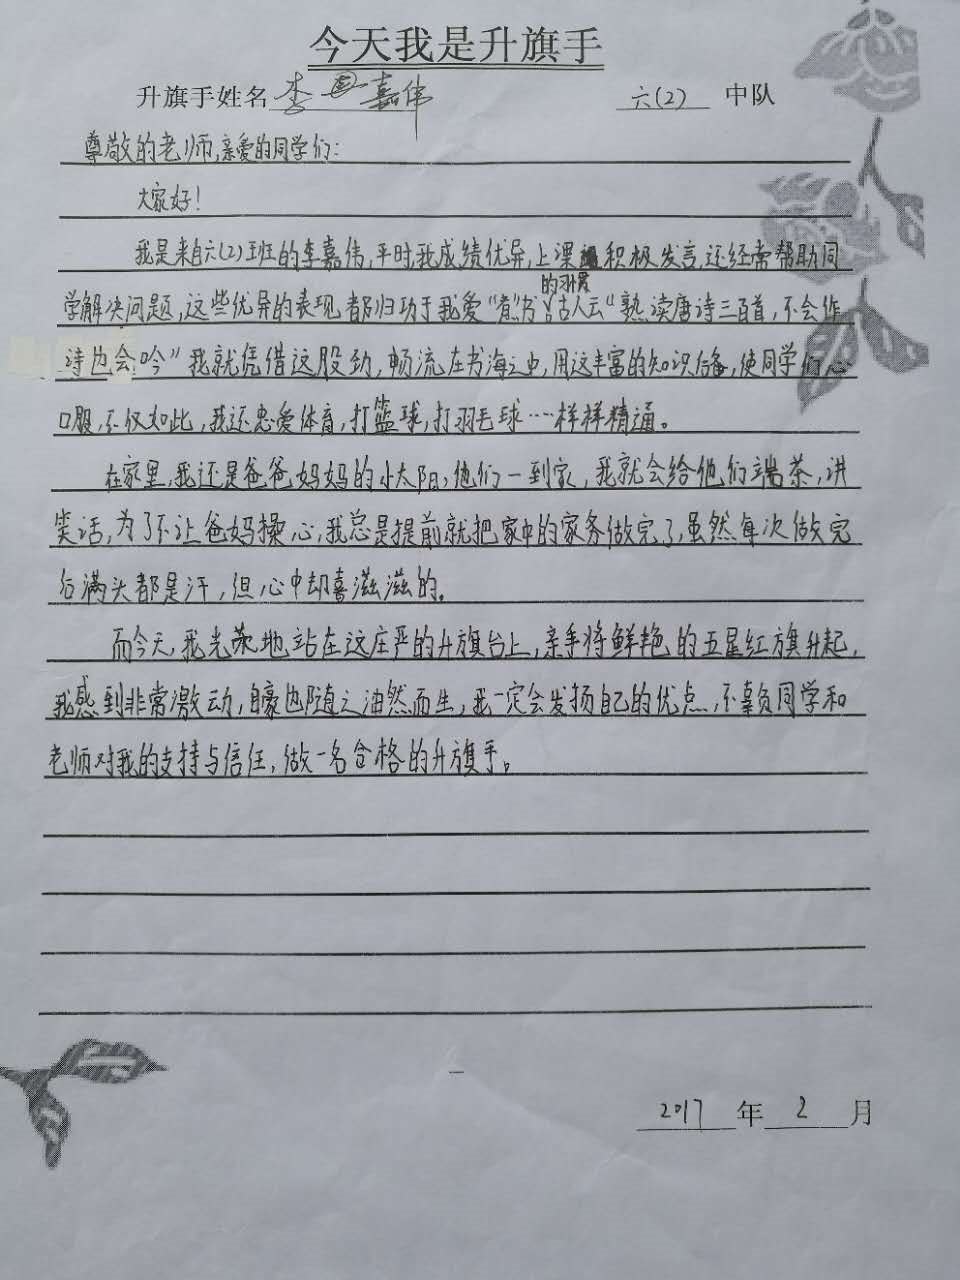 今天我是升旗手
升旗手姓名 李嘉伟 六(2) 中队
尊敬的老师,亲爱的同学们:
大家好!
我是来自六(2)班的李嘉伟,平时,我成绩优异,上课积极发言,还经常帮助同
的习惯
学解决问题,这些优异的表现,都归功于我爱“煮”书 古人云“熟读唐诗三百首,不会作
诗也会吟”我就凭借这股劲,畅流在书海之中,用这丰富的知识后备,使同学们心
口服,不仅如此,我还忠爱体育,打篮球,打羽毛球……样样精通。
在家里,我还是爸爸妈妈的小太阳,他们一到家,我就会给他们端茶,讲
笑话,为了不让爸妈操心,我总是提前就把家中的家务做完了,虽然每次做完
后满头都是汗,但心中却喜滋滋的。
而今天,我光荣地站在这庄严的升旗台上,亲手将鲜艳的五星红旗升起,
我感到非常激动,自豪也随之油然而生,我一定会发扬自己的优点,不辜负同学和
老师对我的支持与信任,做一名合格的升旗手。
2017 年 2 月